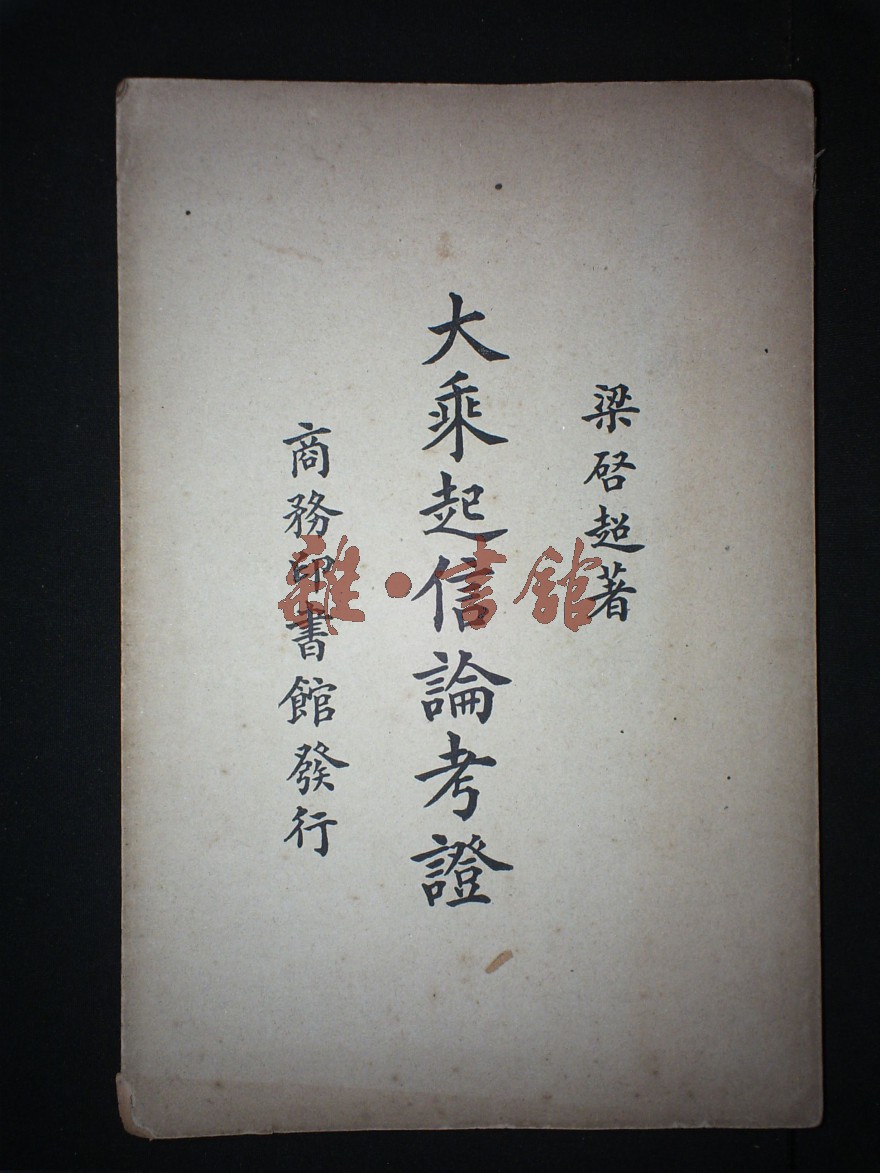 梁啓超著
大乘起信論考證
商務印書館發行
雜·信館